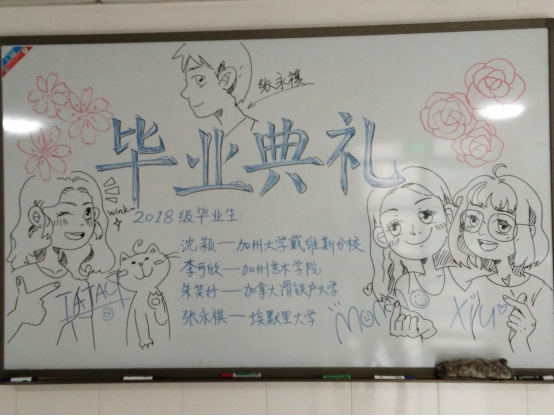 张永祺
毕业典礼
wink~
2018级毕业生
沈颖——加州大学戴维斯分校
李可欣——加州艺术学院
朱笑妤——加拿大滑铁卢大学
张永祺——埃默里大学
TATA
Mom
Xiu